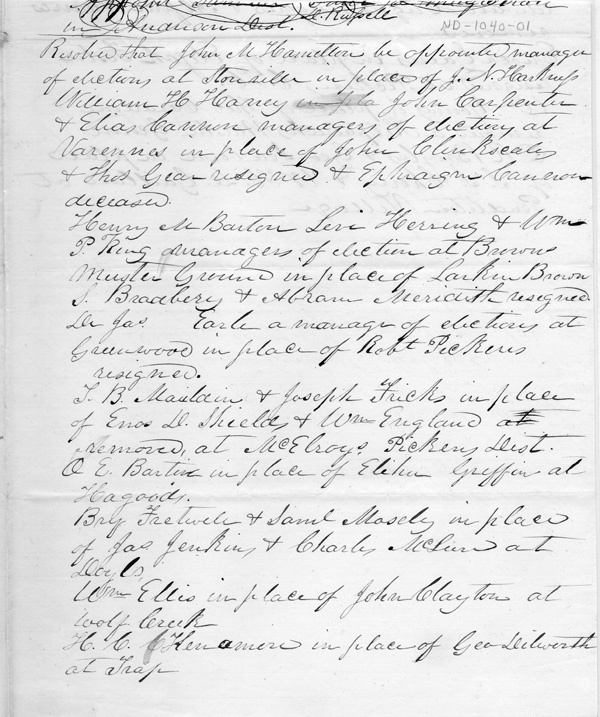 ND-1040-01
in Anderson Dist.
Resolved that John M Hamilton be appointed manager
of elections at Storeville in place of J. N. Harkings
William H Haney in pla John Carpenter
& Elias Cannon managers of elections at
Varennes in place of John Clinkscales
& Thos Geer resigned & Ephraigm Cameron
deceased.
Henry M Barton Levi Herring & Wm
P. King managers of election at Browns
Muster Ground in place of Larkin Brown
S. Bradbery & Abram Meridith resigned
Dr Jas. Earle a manager of elections at
Greenwood in place of Robt Pickens
resigned.
T. B. Mauldin & Joseph Fricks in place
of Enos D. Shields & Wm England at
removed, at McElroys Pickens Dist.
O. E. Barton in place of Elihu Griffin at
Hagoods.
Bry Fretwell & Saml Mosely in place
of Jas Jenkins & Charles McClure at
Doyls,
Wm Ellis in place of John Clayton at
Wolf Creek
H. C. Kenamore in place of Geo Dilworth
at Trap